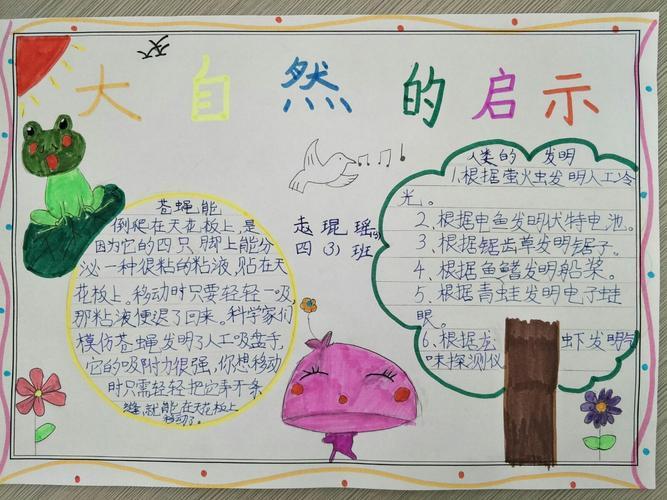 大自然的启示
苍蝇能
倒爬在天花板上,是
因为它的四只脚上能分
泌一种很粘的粘液,贴在天
花板上。移动时只要轻轻一吸,
那粘液便退了回来。科学家们
模仿苍蝇发明了人工吸盘手,
它的吸附力很强,你想移动
时只需轻轻把它弄开条
缝,就能在天花板上
移动了。
赵琨瑶
四(3)班
人类的发明
1.根据萤火虫发明人工冷
光。
2.根据电鱼发明伏特电池。
3.根据锯齿草发明锯子。
4.根据鱼鳍发明船桨。
5.根据青蛙发明电子蛙
眼。
6.根据龙虾发明气
味探测仪